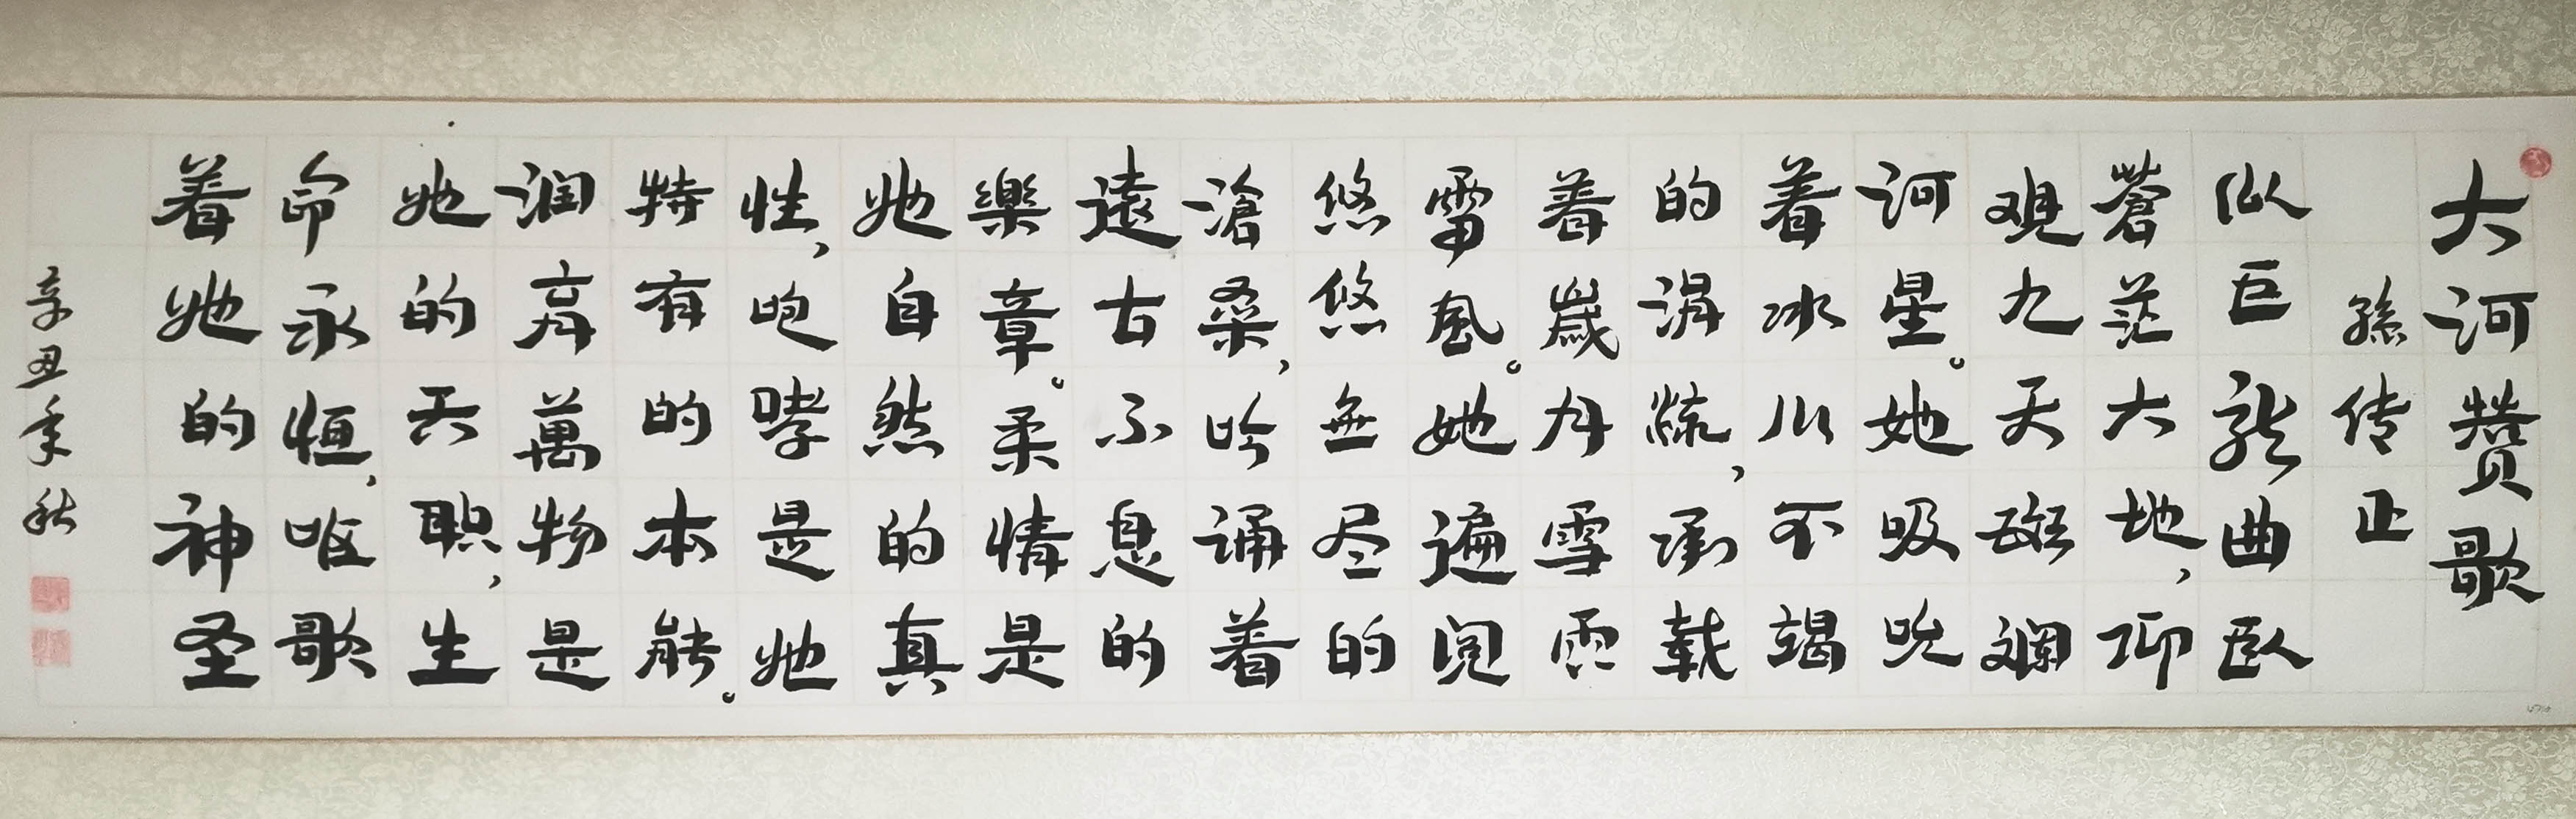 大河赞歌
孫传正
似巨龙曲卧
蒼茫大地，仰
观九天斑斓
河星。她吸吮
着冰川不竭
的涓流，承载
着歲月雪雨
雷風。她遍阅
悠悠無尽的
滄桑，吟诵着
遠古不息的
樂章。柔情是
她自然的真
性，咆哮是她
特有的本能。
润育萬物是
她的天职，生
命永恒，呕歌
着她的神圣
辛丑年秋